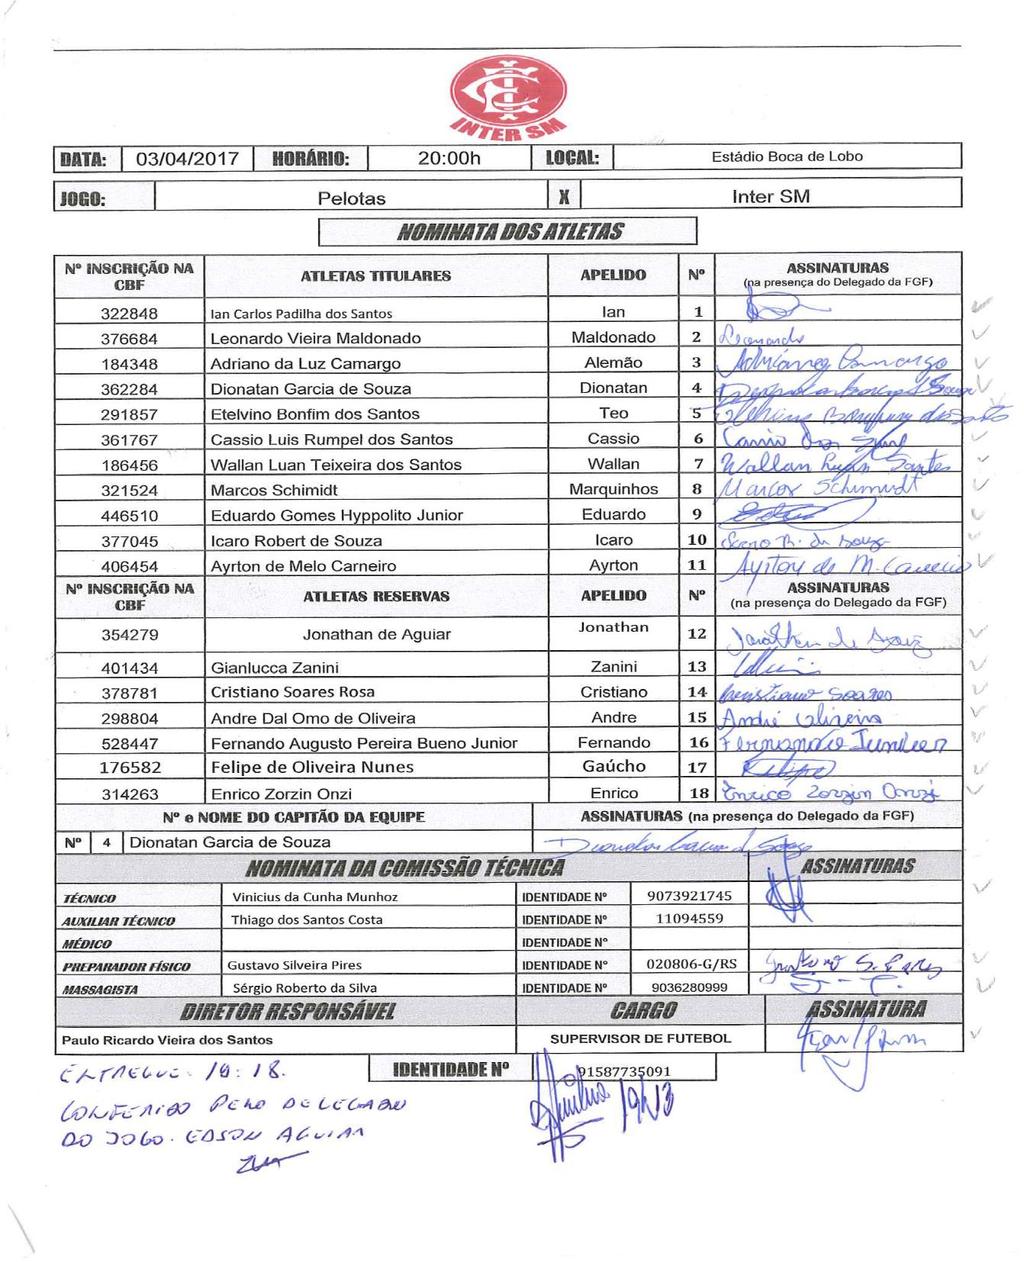 INTER SM
DATA: 03/04/2017 HORÁRIO: 20:00h LOCAL: Estádio Boca de Lobo
JOGO: Pelotas X Inter SM
NOMINATA DOS ATLETAS
Nº INSCRIÇÃO NA CBF ATLETAS TITULARES APELIDO Nº ASSINATURAS (na presença do Delegado da FGF)
322848 Ian Carlos Padilha dos Santos Ian 1
376684 Leonardo Vieira Maldonado Maldonado 2 Leonardo
184348 Adriano da Luz Camargo Alemão 3 Adriano Camargo
362284 Dionatan Garcia de Souza Dionatan 4
291857 Etelvino Bonfim dos Santos Teo 5
361767 Cassio Luis Rumpel dos Santos Cassio 6
186456 Wallan Luan Teixeira dos Santos Wallan 7 Wallan Luan Santos
321524 Marcos Schimidt Marquinhos 8 Marcos Schimidt
446510 Eduardo Gomes Hyppolito Junior Eduardo 9
377045 Icaro Robert de Souza Icaro 10 Icaro R. de Souza
406454 Ayrton de Melo Carneiro Ayrton 11 Ayrton de M. Carneiro
Nº INSCRIÇÃO NA CBF ATLETAS RESERVAS APELIDO Nº ASSINATURAS (na presença do Delegado da FGF)
354279 Jonathan de Aguiar Jonathan 12 Jonathan de
401434 Gianlucca Zanini Zanini 13
378781 Cristiano Soares Rosa Cristiano 14 Cristiano Soares
298804 Andre Dal Omo de Oliveira Andre 15 André Oliveira
528447 Fernando Augusto Pereira Bueno Junior Fernando 16 Fernando Junior
176582 Felipe de Oliveira Nunes Gaúcho 17 Felipe
314263 Enrico Zorzin Onzi Enrico 18 Enrico Zorzin Onzi
Nº e NOME DO CAPITÃO DA EQUIPE ASSINATURAS (na presença do Delegado da FGF)
Nº 4 Dionatan Garcia de Souza
NOMINATA DA COMISSÃO TÉCNICA ASSINATURAS
TÉCNICO Vinicius da Cunha Munhoz IDENTIDADE Nº 9073921745
AUXILIAR TÉCNICO Thiago dos Santos Costa IDENTIDADE Nº 11094559
MÉDICO IDENTIDADE Nº
PREPARADOR FÍSICO Gustavo Silveira Pires IDENTIDADE Nº 020806-G/RS Gustavo S. Pires
MASSAGISTA Sérgio Roberto da Silva IDENTIDADE Nº 9036280999
DIRETOR RESPONSÁVEL CARGO ASSINATURA
Paulo Ricardo Vieira dos Santos SUPERVISOR DE FUTEBOL
IDENTIDADE Nº 91587735091
ENTREGUE. 19:18.
19h13
CONFERIDO PELO DELEGADO
DO JOGO. EDSON AGUIAR